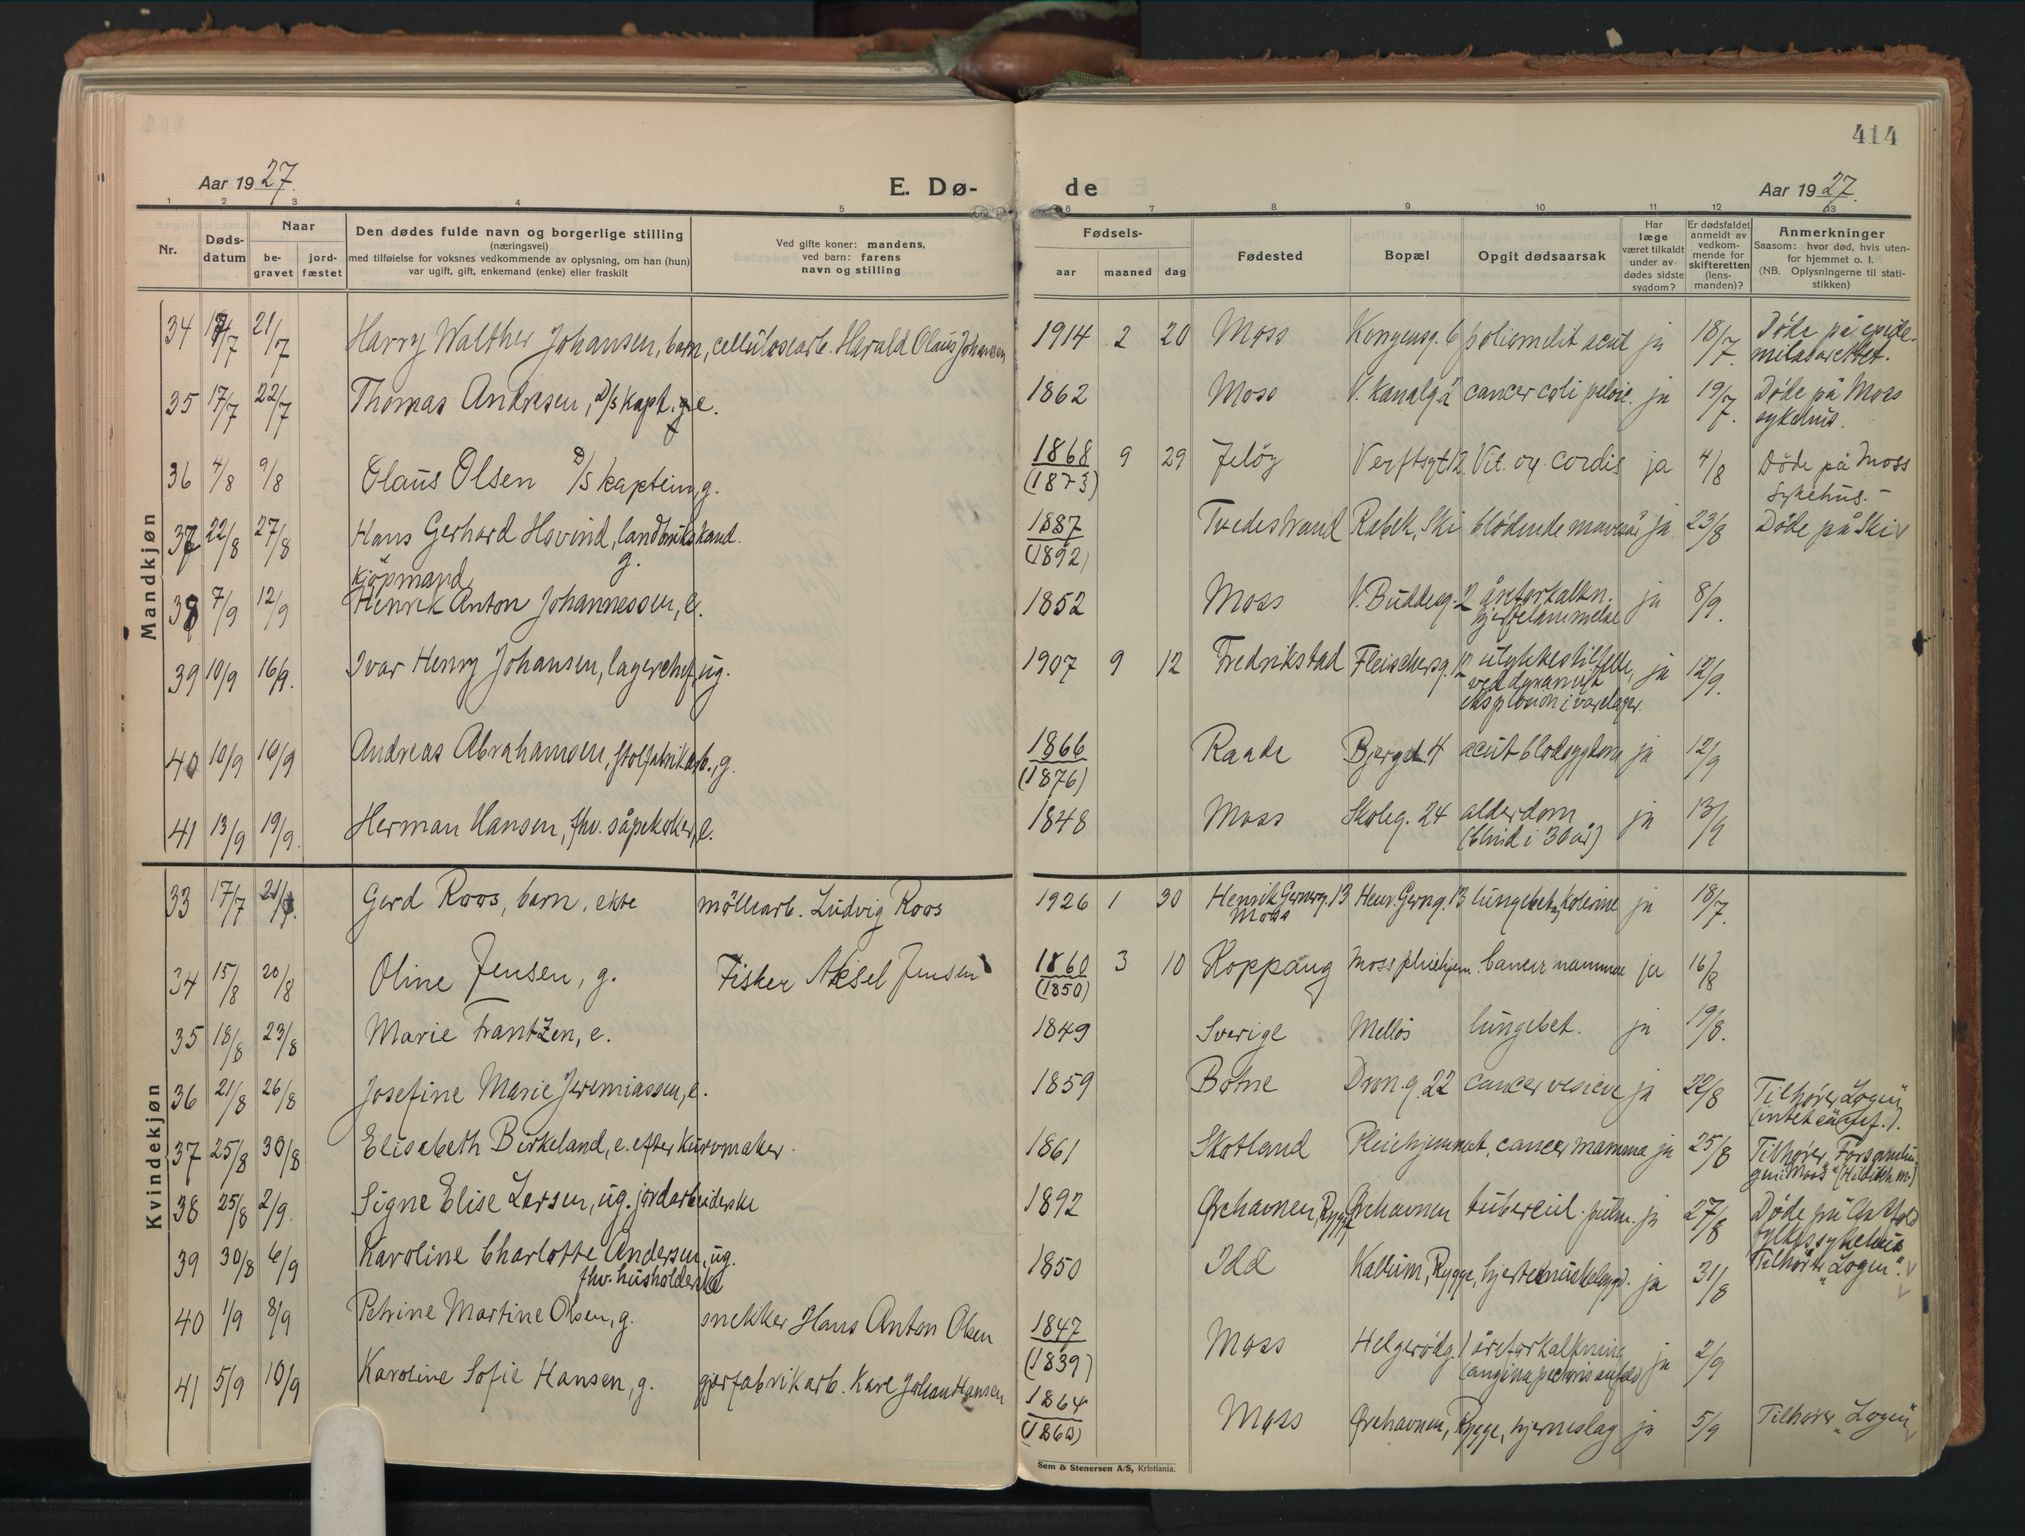 414
Aar 1927.
E. Dø-
de
Aar 1927.
1 2 3 4 5 6 7 8 9 10 11 12 13
Nr.
Døds-
datum
Naar
be-
gravet
jord-
fæstet
Den dødes fulde navn og borgerlige stilling
(næringsvei)
med tilføielse for voksnes vedkommende av oplysning, om han (hun)
var ugift, gift, enkemand (enke) eller fraskilt
Ved gifte koner: mandens,
ved barn: farens
navn og stilling
Fødsels-
aar maaned dag
Fødested
Bopæl
Opgit dødsaarsak
Har
læge
været tilkaldt
under av
dødes sidste
sygdom?
Er dødsfaldet
anmeldt av
vedkom-
mende for
skifteretten
(lens-
manden)?
Anmerkninger
Saasom: hvor død, hvis uten-
for hjemmet o. l.
(NB. Oplysningerne til stati-
stikken)
Mandkjøn
34 17/7 21/7 Harry Walther Johansen, barn, cellulosearb. Harald Olaus Johansen 1914 2 20 Moss Kongensg. 6 poliomelit acut ja 18/7 Døde på epide-
milasarettet.
35 17/7 22/7 Thomas Andresen, D/S kapt. e. 1862 Moss V. Kanalg. 2 cancer coli pelvic. ja 19/7. Døde på Moss
sykehus.
36 4/8 9/8 Olaus Olsen D/S kaptein, g. 1868 (1873) 9 29 Jeløy Verftsgt 12 Vit. og. cordis ja 4/8 Døde på Moss
Sykehus. -
37 22/8 27/8 Hans Gerhard Hovind, landbrukskand.
g. 1887 (1892) Tvedestrand Rabek, Ski blødende mavesår ja 23/8 Døde på Ski
Kjøpmand
38 7/9 12/9 Henrik Anton Johannessen, e. 1852 Moss V. Buddesg. 2 åreforkalkn.
hjertelammelse ja 8/9.
39 10/9 16/9. Ivar Henry Johansen, lagerchef, ug. 1907 9 12 Fredrikstad Fleischersg. 12 ulykkestilfelle,
ved dynamit
eksplosion i varelager. ja 12/9.
40 10/9 16/9 Andreas Abrahamsen, stolfabrikarb., g. 1866 (1876) Raade Bjerget 4 acut blodsygdom ja 12/9
41 13/9 19/9. Herman Hansen, fhv. såpekoker, e. 1848 Moss Skoleg. 24 alderdom
(blind i 36 år) ja 13/9
Kvindekjøn
33 17/7 21/7. Gerd Roos, barn, ekte møllearb. Ludvig Roos 1926 1 30 Henrik Gernerg. 13
Moss Henr. Gerng. 13 lungebet., kolerine ja 18/7.
34 15/8 20/8 Oline Jensen, g. Fisker Aksel Jensen 1860 (1850) 3 10 Koppang Moss pleiehjem. cancer mammae ja 16/8
35 18/8 23/8 Marie Frantzen, e. 1849 Sverige Melløs lungebet. ja 19/8.
36 21/8 26/8 Josefine Marie Jeremiassen, e. 1859 Botne Dron. g. 22 cancer vesicae ja 22/8 Tilhører "Logen"
37 25/8 30/8 Elisabeth Birkeland, e. efter kurvmaker. 1861 Skotland Pleiehjemmet, cancer mammae ja 25/8 Tilhører "Forsamlin-
gen i Moss"
38 25/8 2/9. Signe Elise Larsen, ug. jordarbeiderske 1892 Ørehavnen, Rygge Ørehavnen tubercul. pulm. ja 27/8 Døde på Østfold
fylkessykehus
39 30/8 6/9 Karoline Charlotte Andersen, ug.
fhv. husholderske 1850 Idd Kallum, Rygge, hjertemuskelsygd. ja 31/8 Tilhører "Logen".
40 1/9 8/9 Petrine Martine Olsen, g. snekker Hans Anton Olsen 1847 (1839) Moss Helgerødg. 1 åreforkalkning
(angina pectoris anfald) ja 2/9
41 5/9 10/9 Karoline Sofie Hansen, g. gjærfabrikarb. Karl Johan Hansen 1864 (1860) Moss Ørehavnen, Rygge, hjerneslag ja 5/9 Tilhører "Logen"
Sem & Stenersen A/S, Kristiania.